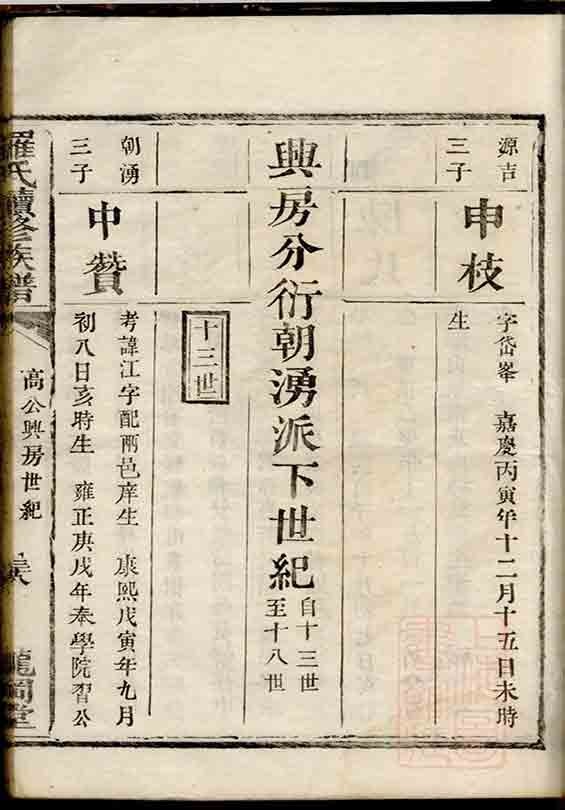 源吉
三子
申枝
字岱峯 嘉慶丙寅年十二月十五日未時
生
興房分衍朝湧派下世紀
自十三世
至十八世
十三世
朝湧
三子
中贊
考諱江字配兩邑庠生 康熙戊寅年九月
初八日亥時生 雍正庚戌年奉學院習公
羅氏續修族譜
高公興房世紀
龍岡堂